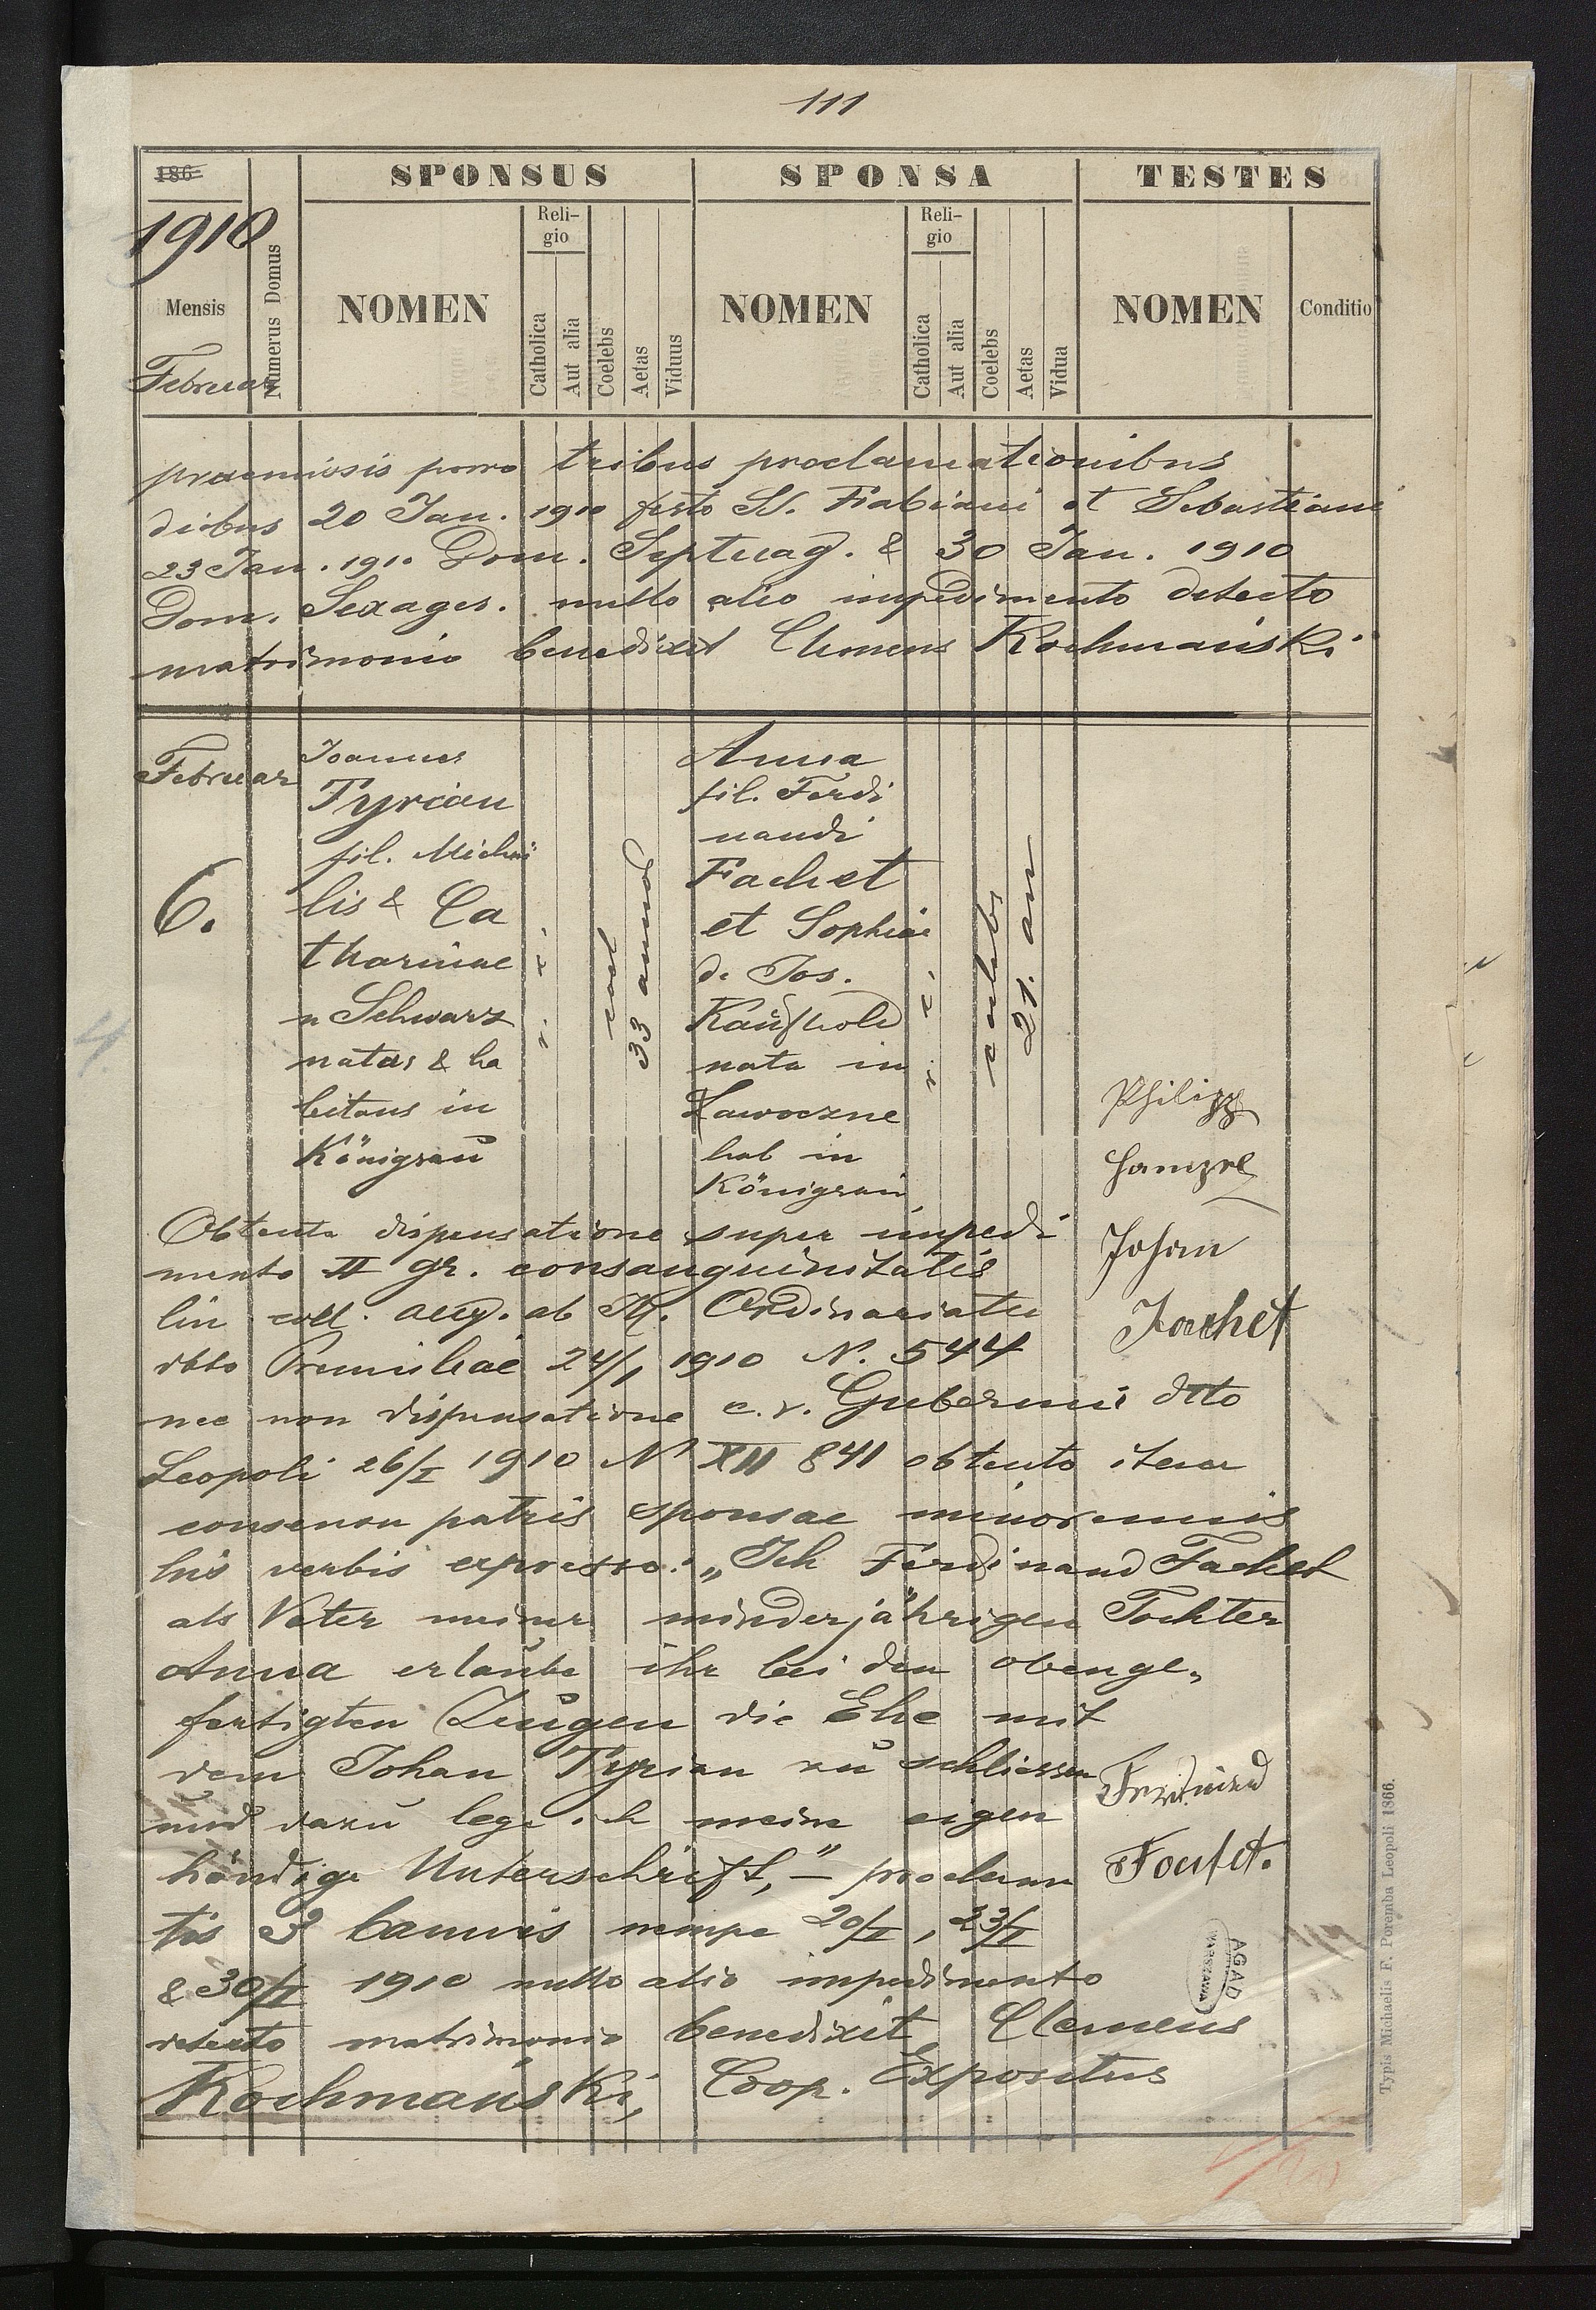 111
186
SPONSUS
SPONSA
TESTES
1910
Mensis
Februar
Numerus Domus
NOMEN
Reli-
gio
Catholica
Aut alia
Coelebs
Aetas
Viduus
NOMEN
Reli-
gio
Catholica
Aut alia
Coelebs
Aetas
Vidua
NOMEN
Conditio
praemissis porro tribus proclamationibus
diebus 20 Jan. 1910 festo SS. Fabiani et Sebastiani
23 Jan. 1910 Dom. Septuag. & 30 Jan. 1910
Dom. Sexages. nullo alio impedimento detecto
matrimonio benedixit Clemens Kochmański
Februar
6.
Joannes
Tyrian
fil. Michaë
lis & Ca
tharinae
n Schwarz
natus & ha
bitans in
Königsau
r. c.
coel
33 annor
Anna
fil. Ferdi
nandi
Fachet
et Sophiae
de Jos.
Kaufhold
nata in
Ławoczne
hab in
Königsau
r. c.
coelebs
21. an
Philipp
Hampel
Johan
Fachet
Obtenta dispensatione super impedi
mento II gr. consanguinitatis
lin coll. aeq. ab Ordinariatu
ddto Premisliae 24/1 1910 N. 544
nec non dispensatione c. r. Gubernii dtto
Leopoli 26/I 1910 N XII 841 obtento item
consensu patris sponsae minorennis
his verbis expresso: „Ich Ferdinand Fachet
als Vater meiner minderjährigen Tochter
Anna erlaube ihr bei den obenge„
fertigten Zeugen die Ehe mit
dem Johan Tyrian zu schliessen
und dazu lege ich meine eigen
händige Unterschrift," – proclama
tis 3 bannis nempe 20/I, 23/I
& 30/I 1910 nullo alio impedimento
detecto matrimonio benedixit Clemens
Kochmański, Coop. Expositus
Ferdinand
Fachet.
AGAD
WARSZAWA
Typis Michaelis F. Poremba Leopoli 1866.
4.